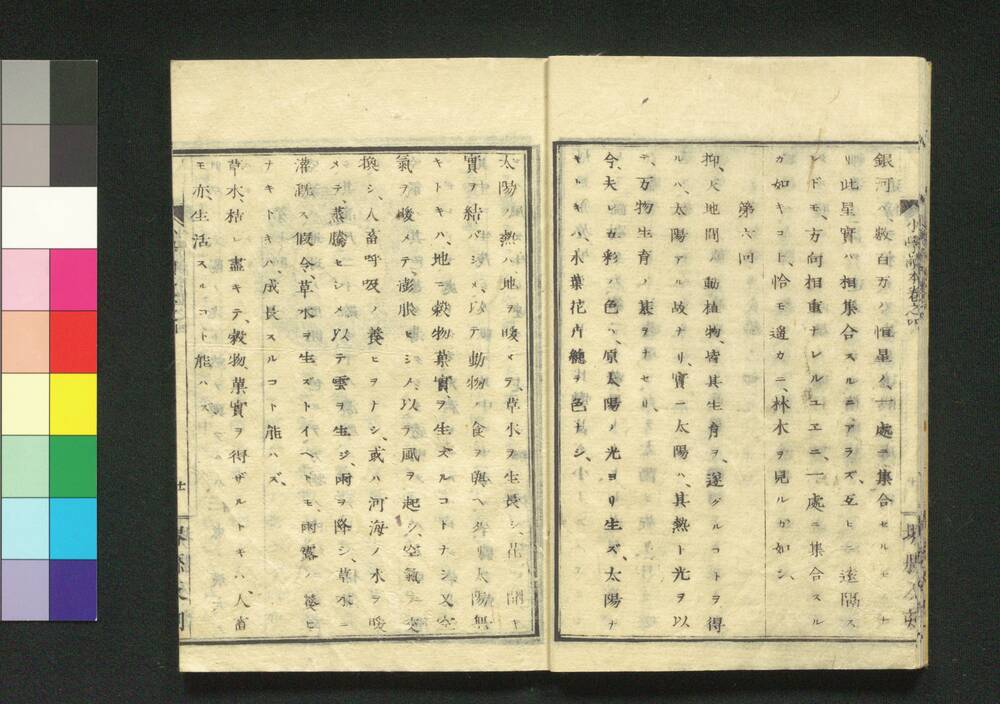 銀河ハ數百万ノ恒星、一處ニ集合セルモノナ
リ此星實ハ相集合スルニアラズ、互ヒニ遠隔ス
レドモ、方向相重ナレルユエニ、一處ニ集合スル
ガ如キコト、恰モ遙カニ、林木ヲ見ルガ如シ、
第六回
抑、天地間ノ動植物、皆其生育ヲ、遂グルコトヲ得
ルハ、太陽アル故ナリ、實ニ太陽ハ、其熱ト光ヲ以
テ、万物生育ノ基ヲナセリ、
今、夫レ五彩ノ色ハ、原太陽ノ光ヨリ生ズ、太陽ナ
キトキハ、木葉花卉総テ色ナシ、
太陽ノ熱ハ地ヲ暖メテ、草木ヲ生長シ、花ヲ開キ
實ヲ結バシメ、以テ動物ノ食ヲ與ヘ、若シ太陽無
キトキハ、地ニ穀物菓實ヲ生ズルコトナシ又空
氣ヲ暖メテ、膨脹セシメ、以テ風ヲ起シ、空氣ヲ交
換シ、人畜呼吸ノ養ヒヲナシ、或ハ河海ノ水ヲ暖
メテ、蒸騰セシメ、以テ雲ヲ生ジ、雨ヲ降シ、草木ニ
灌漑ス假令、草木ヲ生ズトイヘドモ、雨露ノ養ヒ
ナキトキハ、成長スルコト能ハズ、
草木、枯レ盡キテ、穀物、菓實ヲ得ザルトキハ、人畜
モ亦、生活スルコト能ハズ